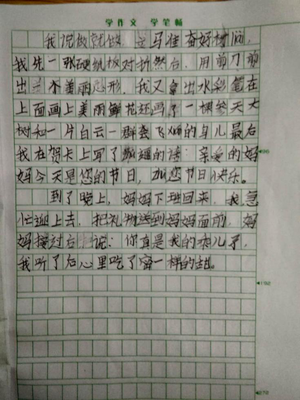 学作文 学笔畅
我说做就做 立马准备好材料，
我先一张硬纸板对折然后，用剪刀剪
出一个美丽心形，我又拿出水彩笔在
上面画上美丽鲜花还画了一棵参天大
树和一片白云一群要飞的鸟儿最后
我在贺卡上写了的话：亲爱的妈
妈今天是您的节日，祝您节日快乐。
到了晚上，妈妈下班回来，我急
忙迎上去，把礼物送到妈妈面前，妈
妈接过后说：你真是我的女儿，
我听了后心里吃了蜜一样的甜。